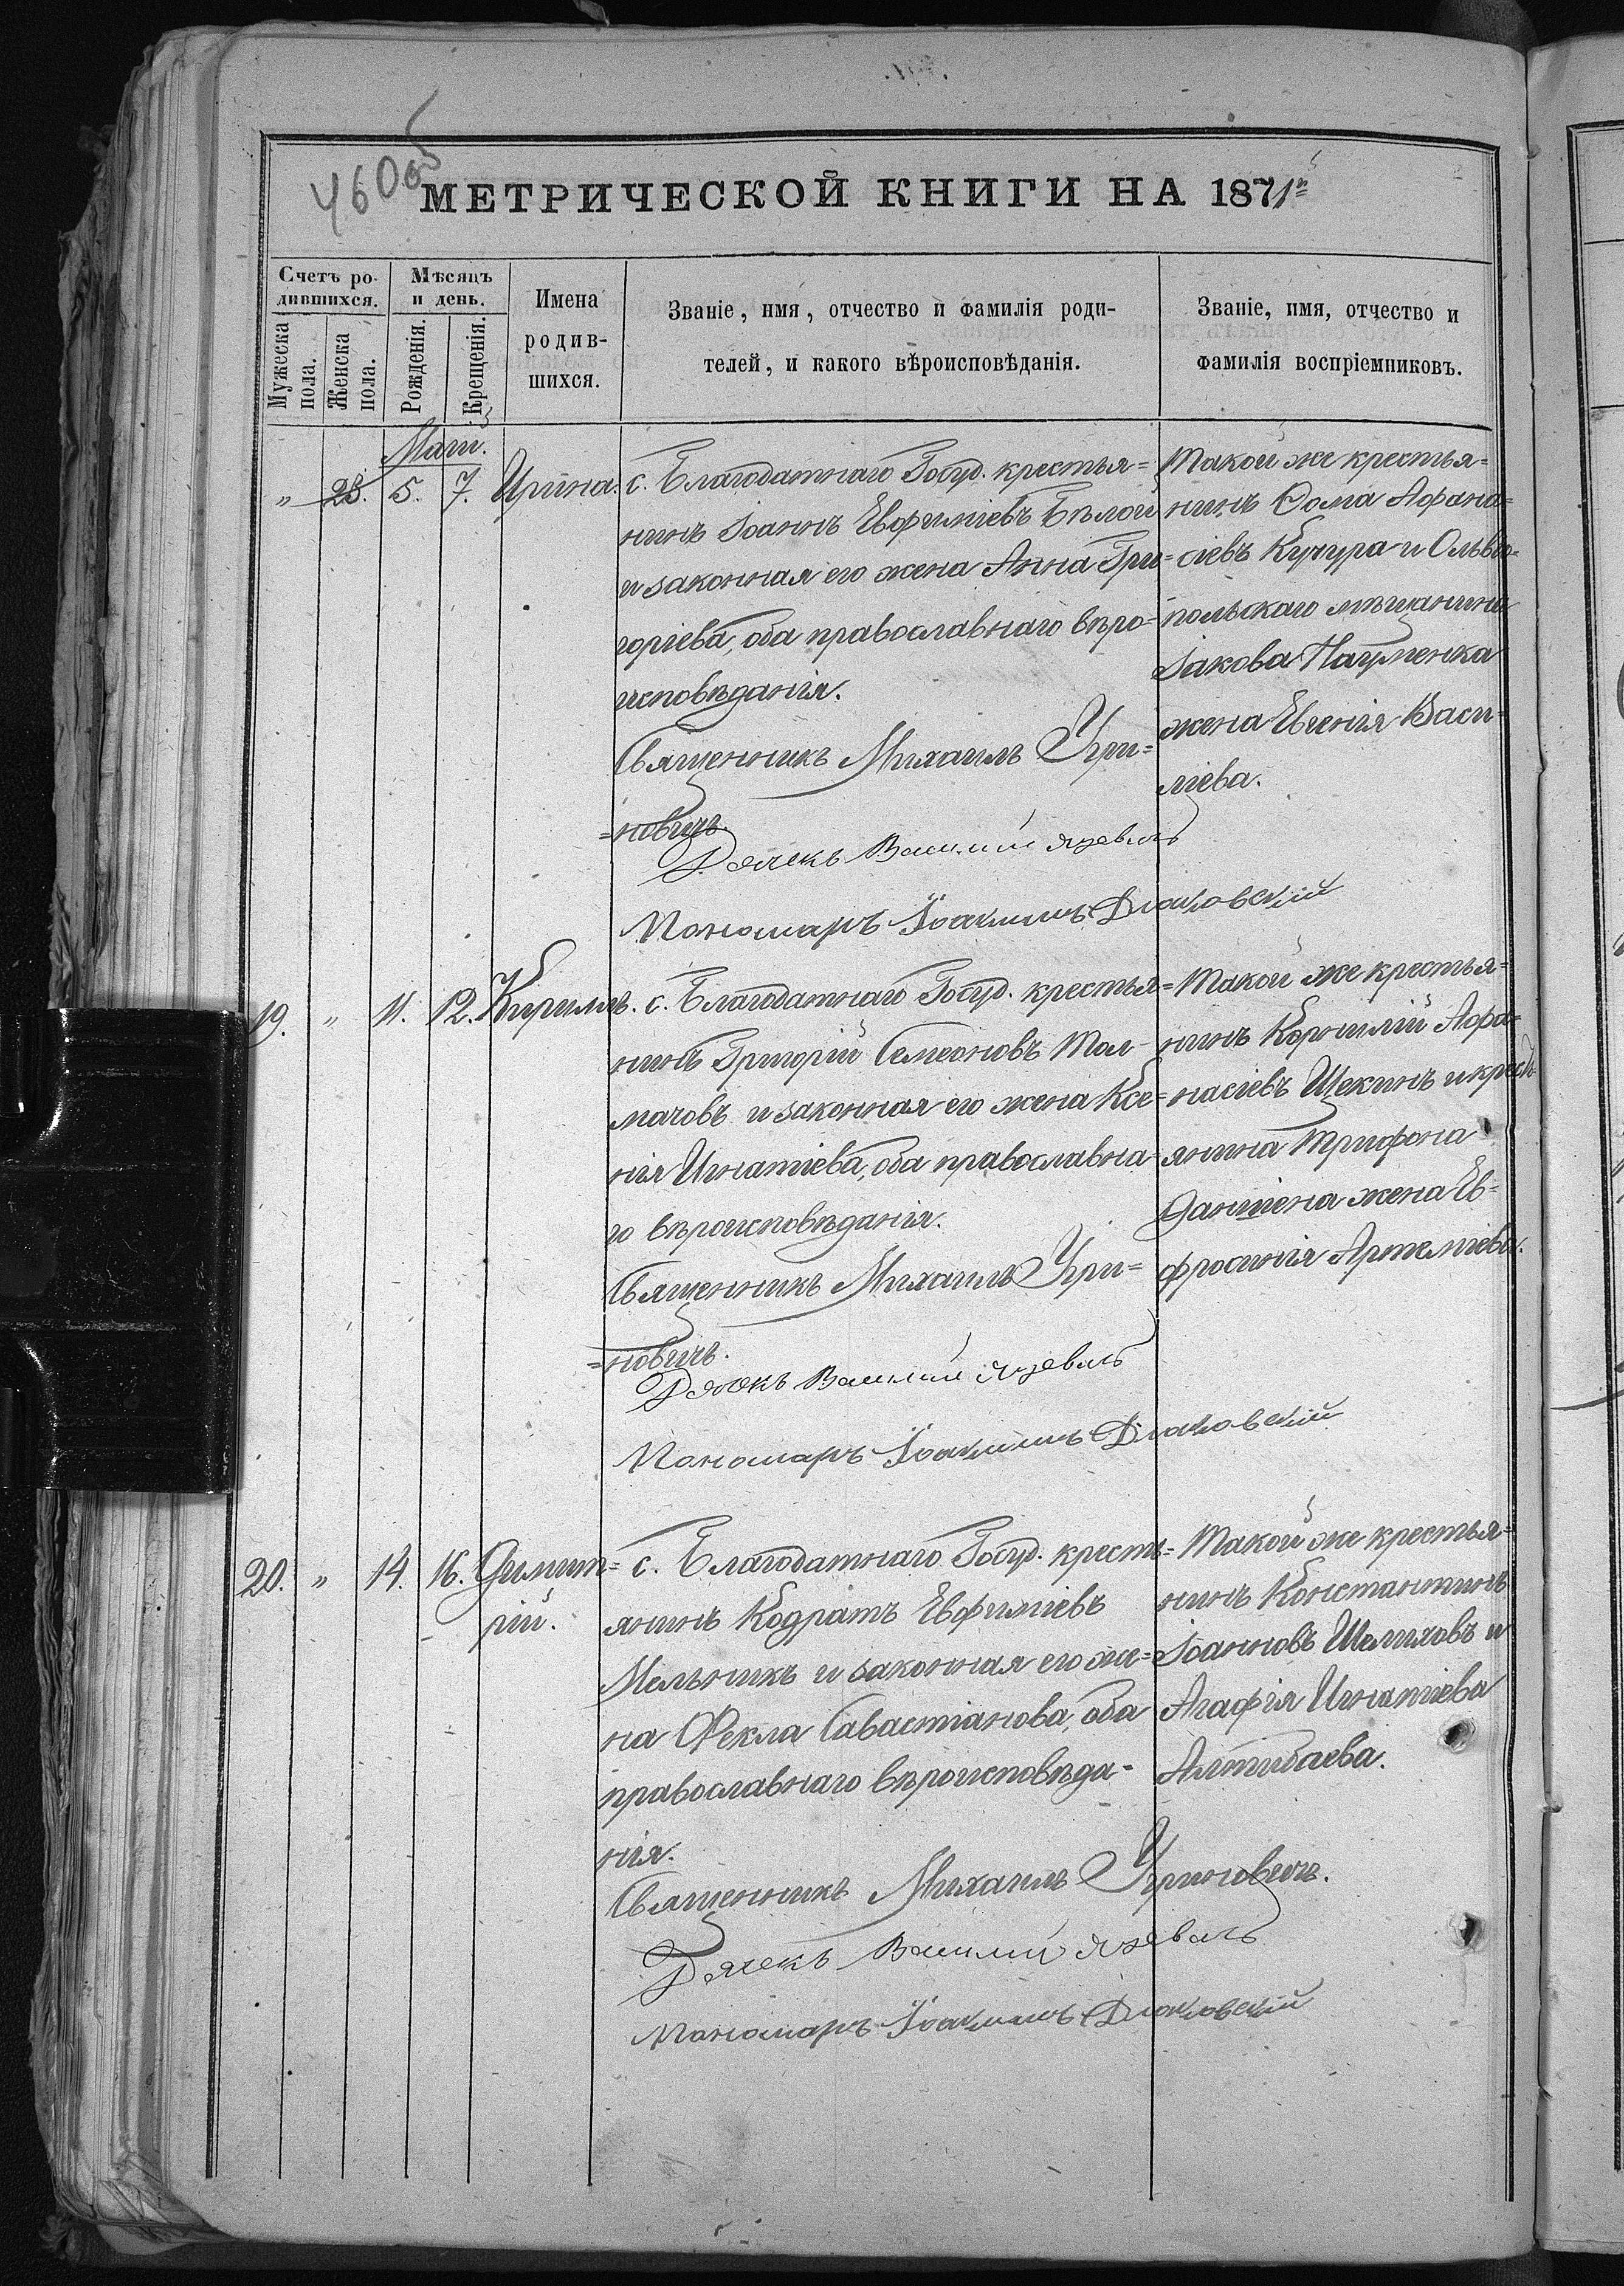 460об
МЕТРИЧЕСКОЙ КНИГИ НА 1871й
Счетъ ро-
дившихся.
Мужеска
пола.
Женска
пола.
Мѣсяцъ
и день.
Рожденія.
Крещенія.
Имена
родив-
шихся.
Званіе, имя, отчество и фамилія роди-
телей, и какого вѣроисповѣданія.
Званіе, имя, отчество и
фамилія воспріемниковъ.
Маій.
„ 28. 5. 7. Ирина.
с. Благодатнаго Госуд. крестья=
нинъ Іоаннъ Евфиміевъ Бѣлой
и законная его жена Анна Гри=
горіева, оба православнаго вѣро-
исповѣданія.
Священникъ Михаилъ Угри=
=новичъ.
Дячекъ Василій
Пономарь Іоакимъ Дьяковскій
Такой же крестья=
нинъ Ѳома Аѳана=
сіевъ Кучура и Ольвіо-
польскаго мѣщанина
Іакова Науменка
жена Евгенія Васи-
ліева.
19. „ 11. 12. Кириллъ.
с. Благодатнаго Госуд. крестья=
нинъ Григорій Семеоновъ Тол-
мачовъ и законная его жена Ксе=
нія Игнатіева, оба православна-
го вѣроисповѣданія.
Священникъ Михаилъ Угри=
=новичъ.
Дячекъ Василій
Пономарь Іоакимъ Дьяковскій
Такой же крестья=
нинъ Корнилій Аѳа=
насіевъ Щекинъ и крест
янина Трифона
жена Ев=
фросинія Артеміева.
20. „ 14. 16. Димит=
рій.
с. Благодатнаго Госуд. кресть=
янинъ Кодратъ Евфиміевъ
Мельникъ и законная его же=
на Ѳекла Савастіанова, оба
православнаго вѣроисповѣда-
нія.
Священникъ Михаилъ Угриновичъ.
Дячекъ Василій
Пономарь Іоакимъ Дьяковскій
Такой же крестья=
нинъ Константинъ
Іоанновъ Шелиховъ и
Агафія Игнатіева
Алтибаева.